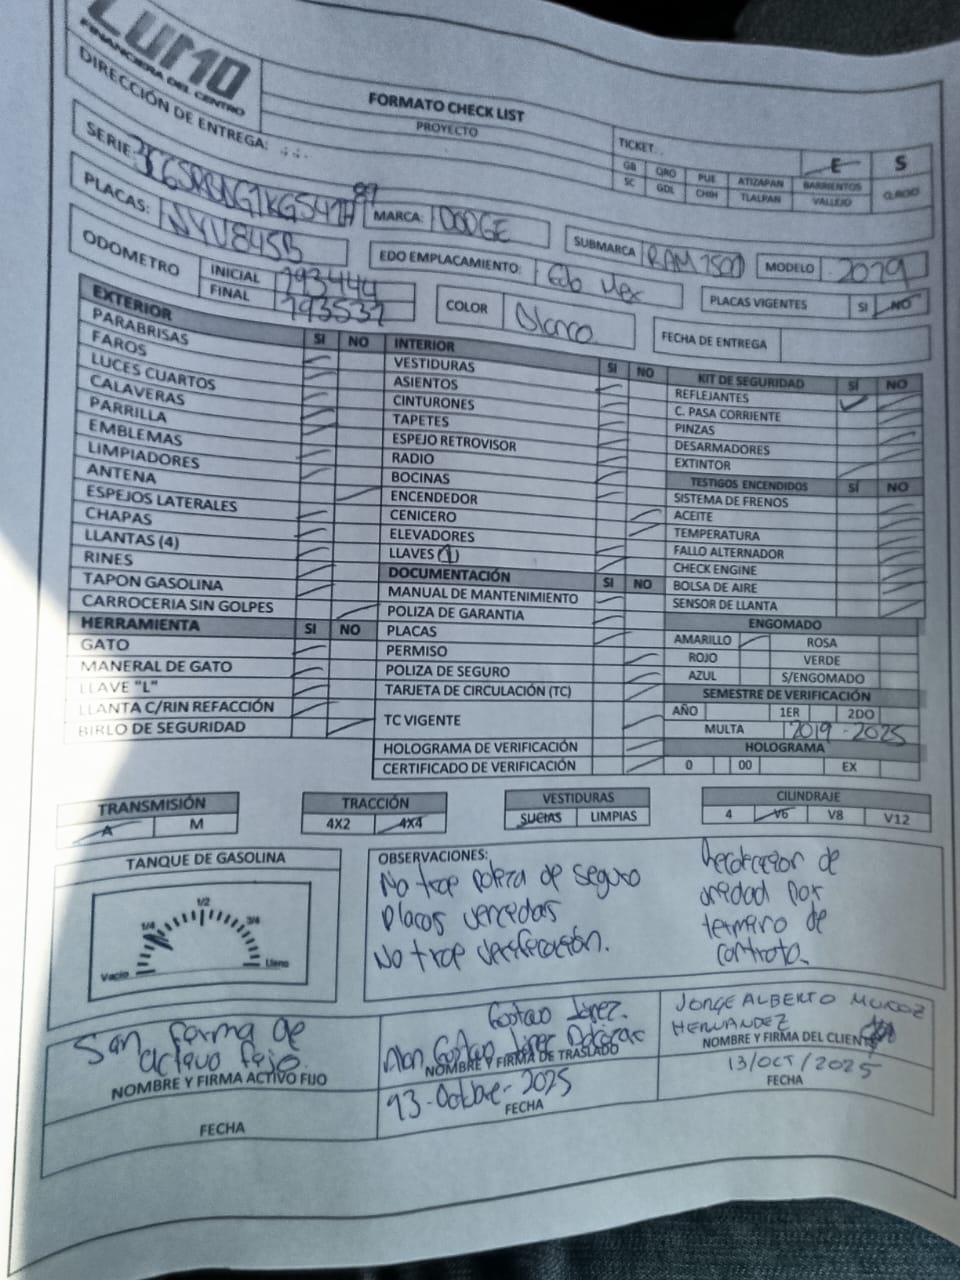 LUMO
FINANCIERA DEL CENTRO
FORMATO CHECK LIST
PROYECTO
DIRECCIÓN DE ENTREGA:
TICKET:
E S
GB QRO PUE ATIZAPAN BARRIENTOS
SC GDL CHIH TLALPAN VALLEJO
SERIE:
MARCA: DODGE
SUBMARCA RAM 1500
MODELO 2019
PLACAS: NYV845B
EDO EMPLACAMIENTO: Edo Mex
PLACAS VIGENTES SI NO
ODOMETRO
INICIAL 193444
FINAL 193537
COLOR Blanco
FECHA DE ENTREGA
EXTERIOR SI NO
PARABRISAS
FAROS
LUCES CUARTOS
CALAVERAS
PARRILLA
EMBLEMAS
LIMPIADORES
ANTENA
ESPEJOS LATERALES
CHAPAS
LLANTAS (4)
RINES
TAPON GASOLINA
CARROCERIA SIN GOLPES
HERRAMIENTA SI NO
GATO
MANERAL DE GATO
LLAVE "L"
LLANTA C/RIN REFACCIÓN
BIRLO DE SEGURIDAD
INTERIOR SI NO
VESTIDURAS
ASIENTOS
CINTURONES
TAPETES
ESPEJO RETROVISOR
RADIO
BOCINAS
ENCENDEDOR
CENICERO
ELEVADORES
LLAVES (1)
DOCUMENTACIÓN SI NO
MANUAL DE MANTENIMIENTO
POLIZA DE GARANTIA
PLACAS
PERMISO
POLIZA DE SEGURO
TARJETA DE CIRCULACIÓN (TC)
TC VIGENTE
HOLOGRAMA DE VERIFICACIÓN
CERTIFICADO DE VERIFICACIÓN
KIT DE SEGURIDAD SÍ NO
REFLEJANTES
C. PASA CORRIENTE
PINZAS
DESARMADORES
EXTINTOR
TESTIGOS ENCENDIDOS SÍ NO
SISTEMA DE FRENOS
ACEITE
TEMPERATURA
FALLO ALTERNADOR
CHECK ENGINE
BOLSA DE AIRE
SENSOR DE LLANTA
ENGOMADO
AMARILLO ROSA
ROJO VERDE
AZUL S/ENGOMADO
SEMESTRE DE VERIFICACIÓN
AÑO 1ER 2DO
MULTA 2019-2025
HOLOGRAMA
0 00 EX
TRANSMISIÓN
A M
TRACCIÓN
4X2 4X4
VESTIDURAS
SUCIAS LIMPIAS
CILINDRAJE
4 V6 V8 V12
TANQUE DE GASOLINA
Vacio 1/4 1/2 3/4 Lleno
OBSERVACIONES:
No trae de seguro
Placas vencidas
No trae verificación.
de
por
de
contrato.
San
NOMBRE Y FIRMA ACTIVO FIJO
FECHA
Gustavo
NOMBRE Y FIRMA DE TRASLADO
13-Octubre-2025
FECHA
JORGE ALBERTO MUÑOZ
HERNANDEZ
NOMBRE Y FIRMA DEL CLIENTE
13/OCT/2025
FECHA